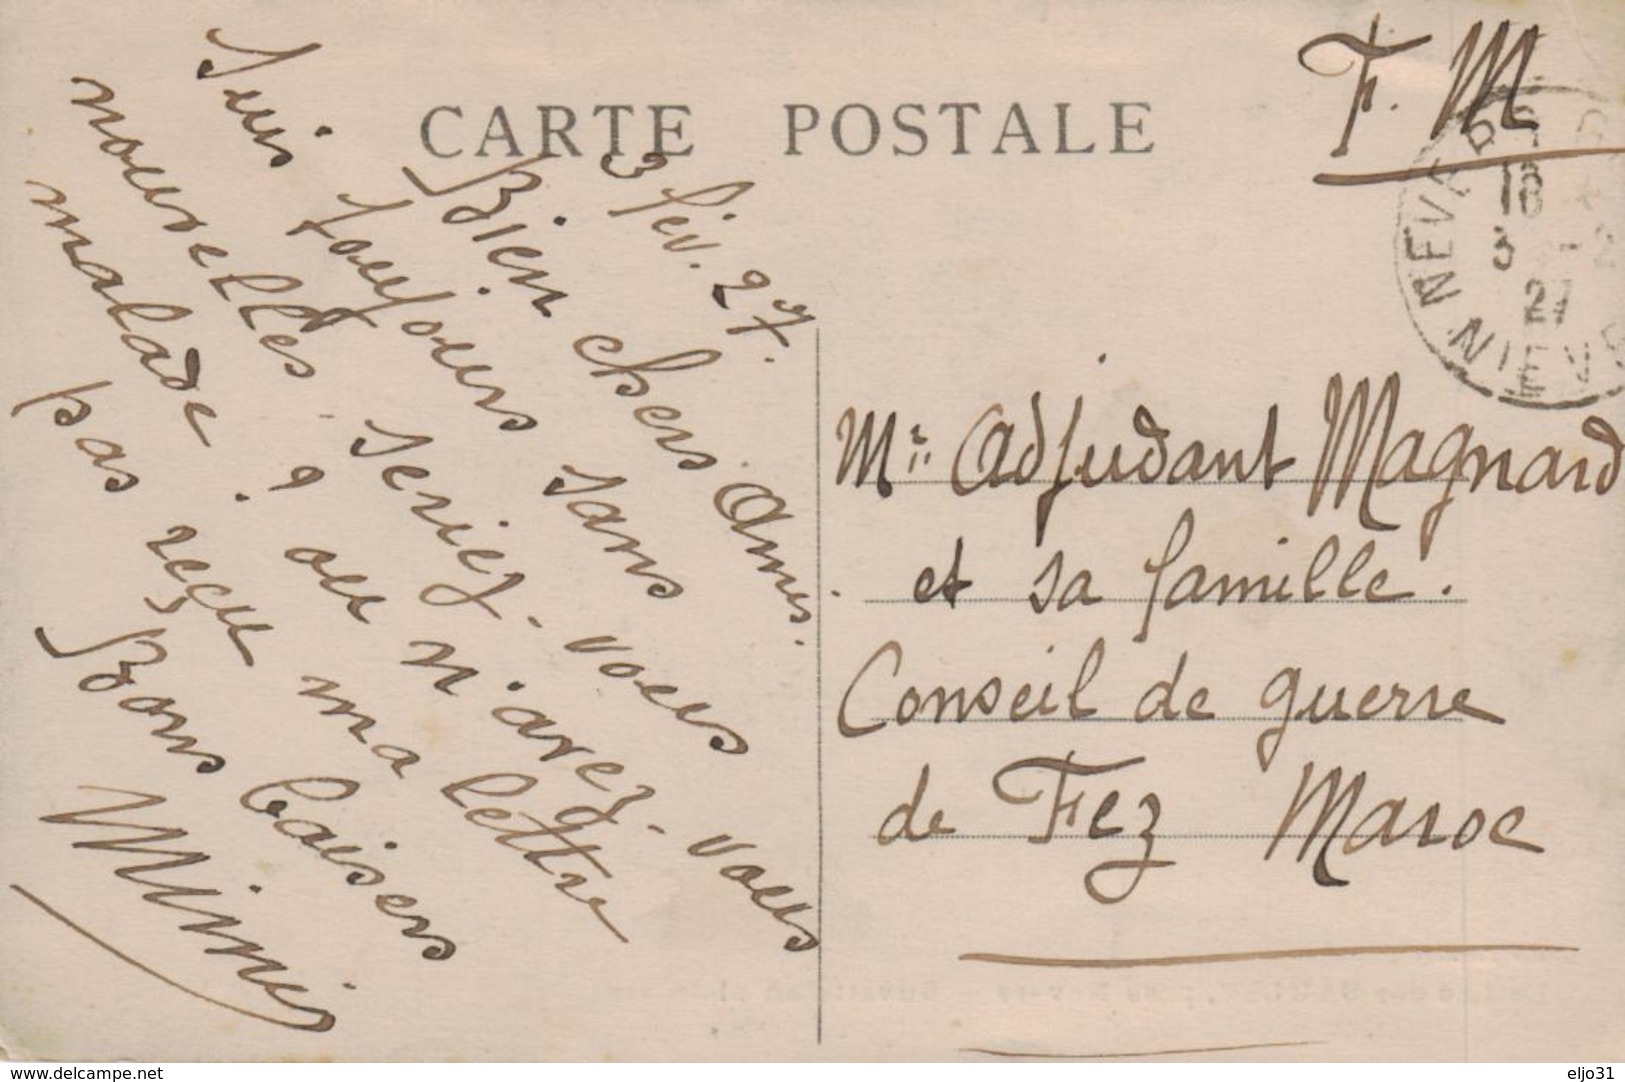 CARTE POSTALE
F. M
NEVERS
18
3 - 2
27
NIEVRE
3 fév. 27.
Bien chers Amis.
Suis toujours sans
nouvelles. seriez-vous
malade ? ou n'avez-vous
pas reçu ma lettre
Bons baisers
Mimi
Mr Adjudant Magnard
et sa famille.
Conseil de guerre
de Fez Maroc
www.delcampe.net
eljo31